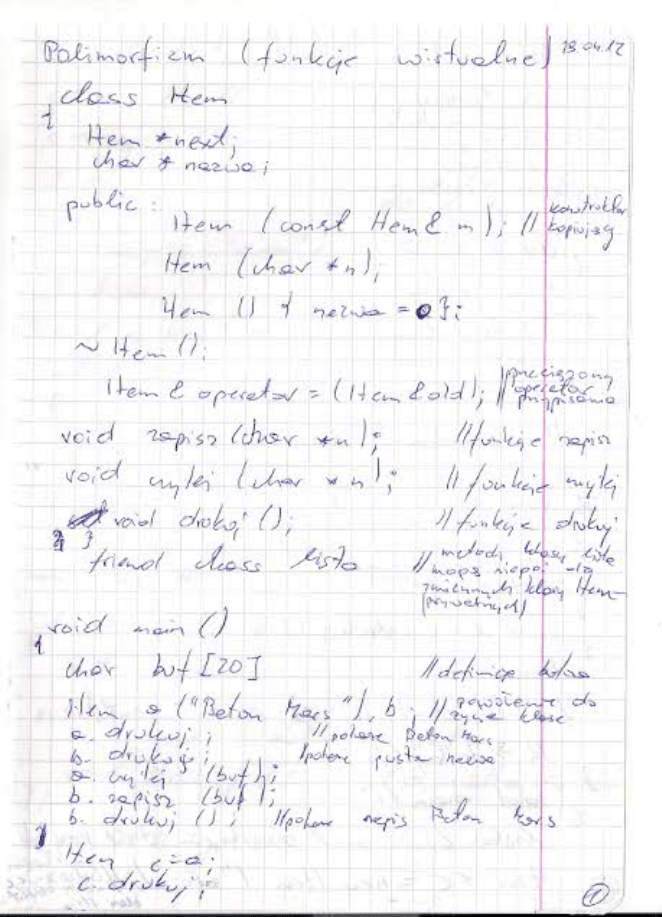 Polimorfizm (funkcje wirtualne) 18.04.12
class Item
{
Item *next;
char * nazwa;
public:
Item (const Item & m); // konstruktor
kopiujący
Item (char *n);
Item () { nazwa = 0 };
~ Item ();
Item & operator = (Item & old); // przeciążony
operator
przypisania
void zapisz (char *n); // funkcje zapisz
void wylej (char *n); // funkcje wylej
void drukuj (); // funkcje drukuj
}
friend class lista // metody klasy lista
klasy Item
void main ()
{
char buf [20] // definicja bufora
Item a ("Baton Mars"), b; // powołanie do
życia klas
a. drukuj; // pokaże Baton Mars
b. drukuj; // pokaże pusta nazwa
a. wylej (buf);
b. zapisz (buf);
b. drukuj (); // pokaże napis Baton Mars
}
Item c=a;
c. drukuj;
1